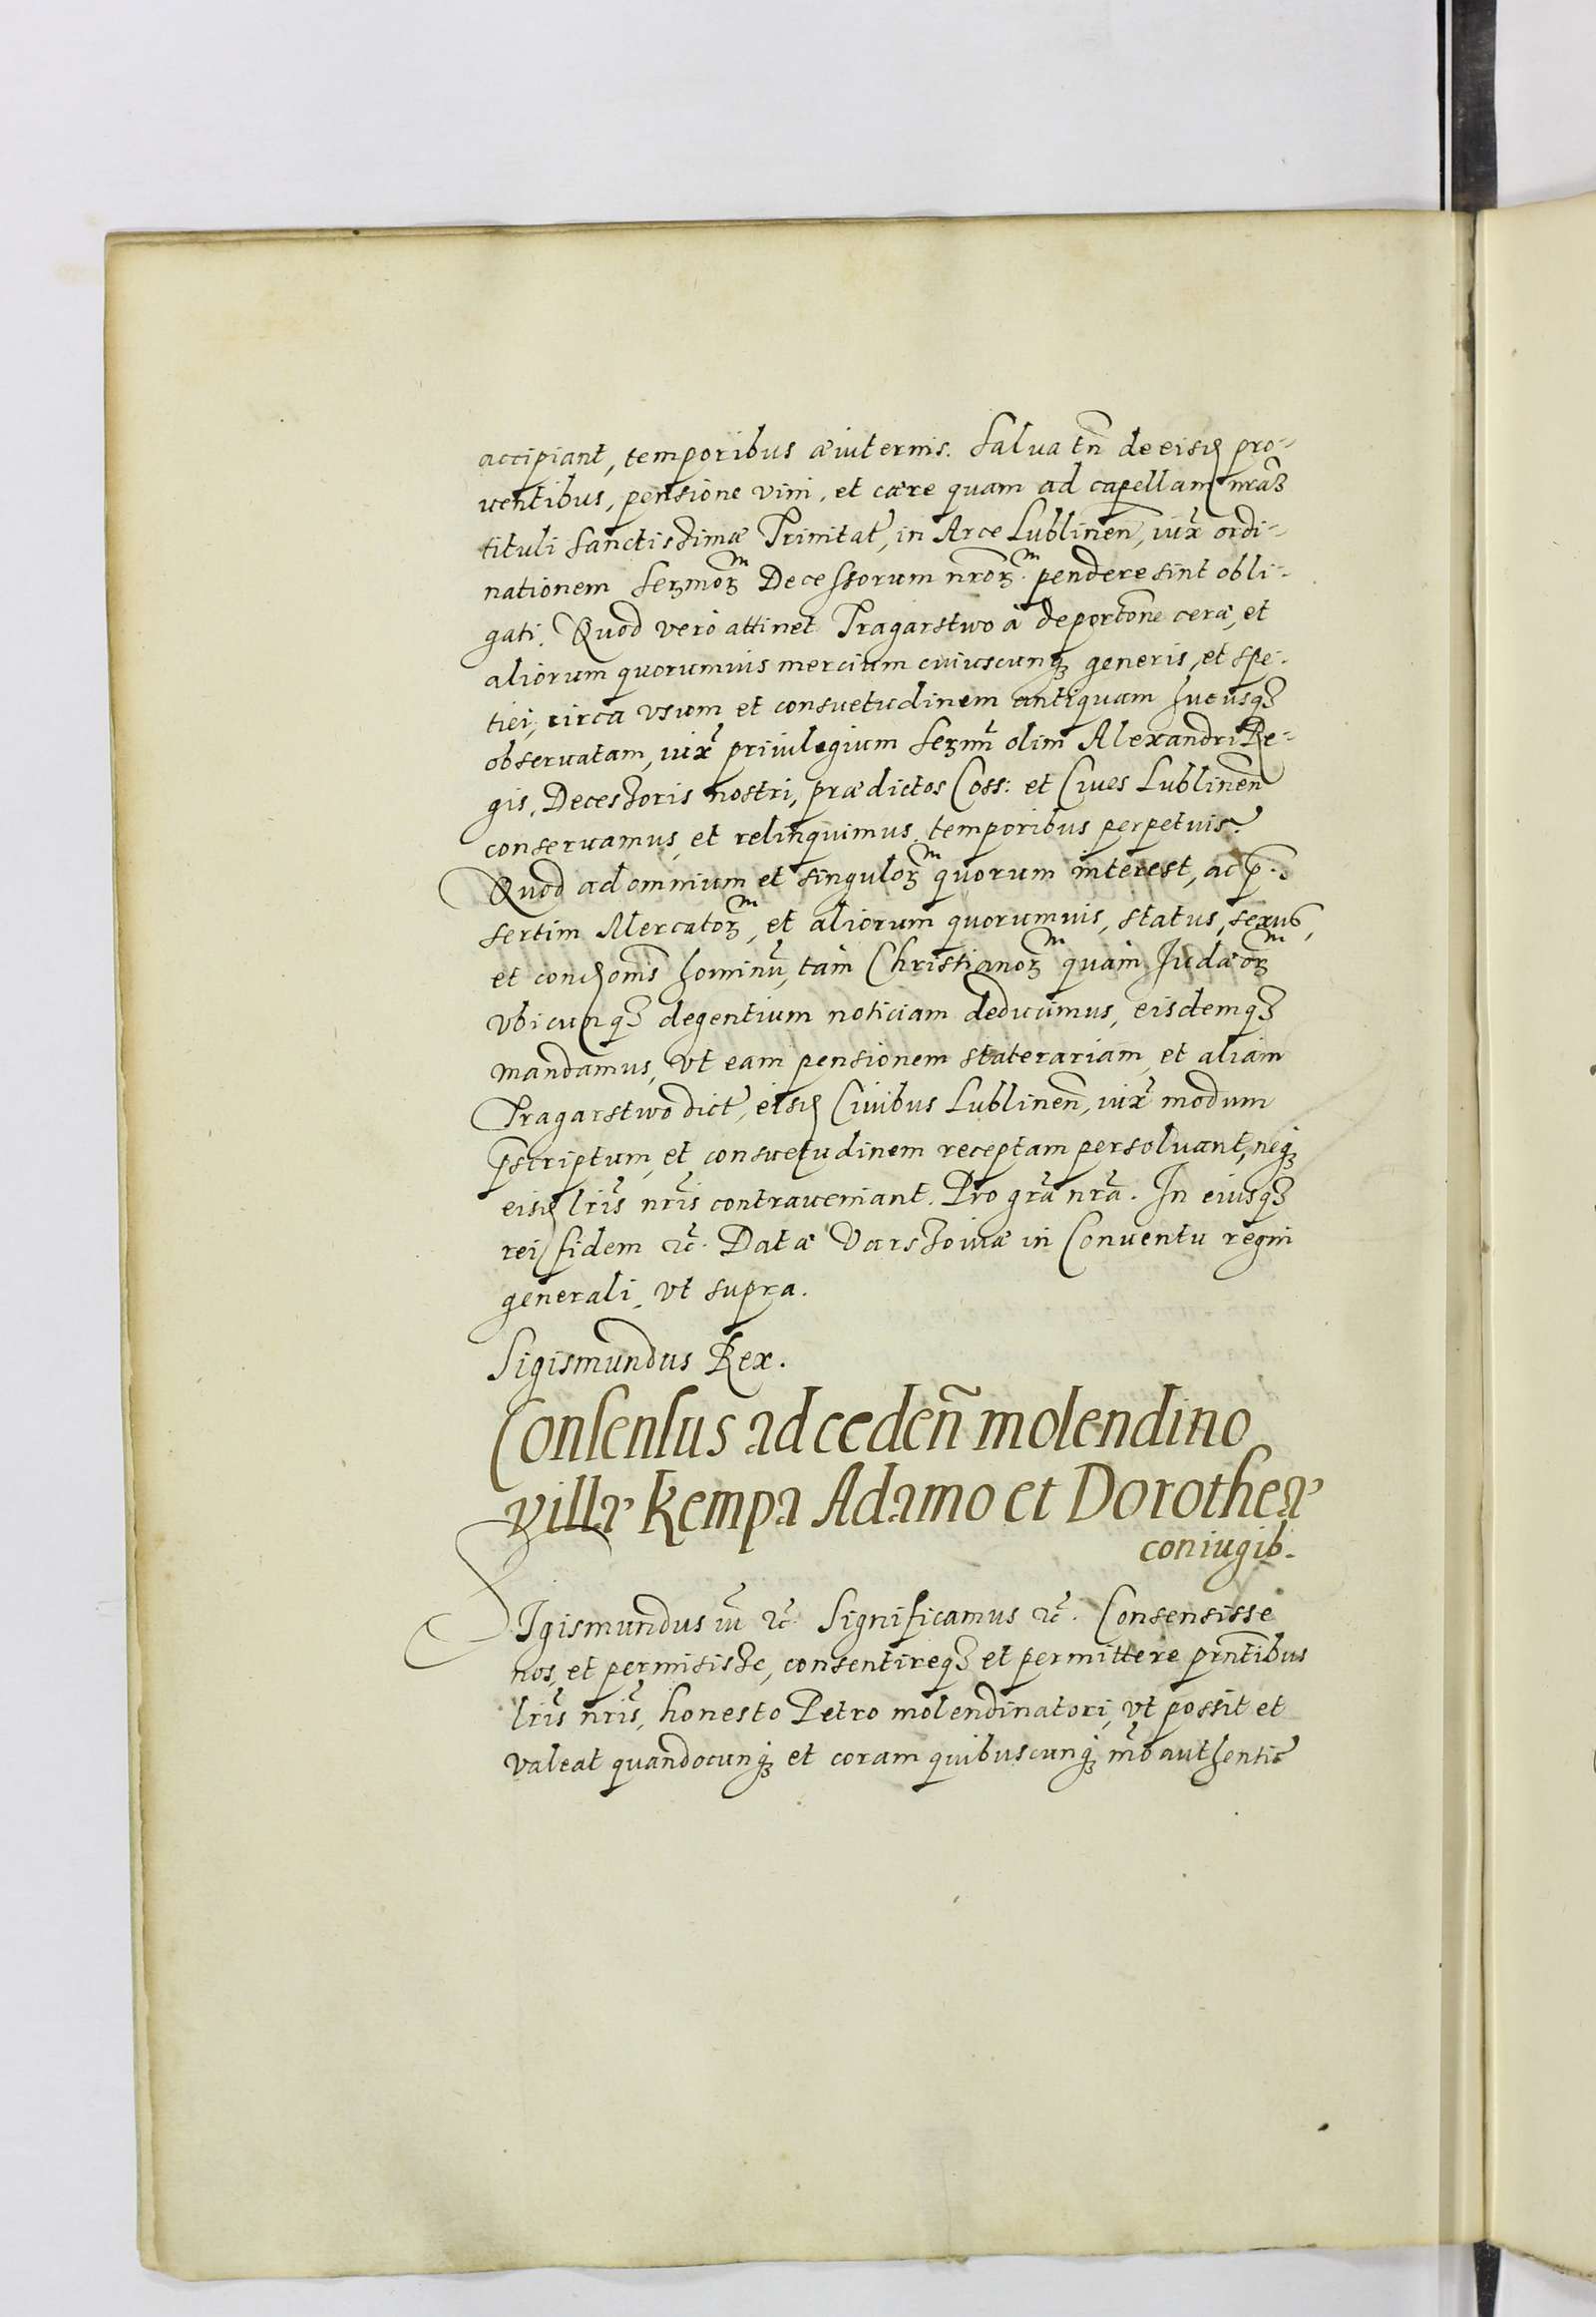 accipiant, temporibus æviternis. Salva tñ de eisd pro-
ventibus, pensione vini, et cære quam ad capellam nrãm
tituli Sanctissimæ Trinitat, in Arce Lublineñ, iuxˀ ordi-
nationem Sermorˀᵐ Decessorum nrorˀᵐ pendere sint obli-
gati. Quod verò attinet Tragarstwo à deportõne ceræ, et
aliorum quorumvis mercium cuiuscunq; generis, et spe-
tiei, circa usum et consvetudinem antiquam hucusq;
observatam, iuxˀ privilegium Sermi olim Alexandri Re-
gis, Decessoris nostri, prædictos Coss: et Cives Lublineñ
conservamus, et relinquimus temporibus perpetuis.
Quod ad omnium et singulorˀᵐ quorum interest, ac p̃-
sertim Mercatorˀᵐ, et aliorum quorumvis, status, sexus,
et condonis hominũ, tàm Christianorˀᵐ quàm Judæorˀᵐ
vbicunq; degentium noticiam deducimus, eisdemq;
mandamus, vt eam pensionem staterariam, et aliam
Tragarstwo dict, eisd Civibus Lublineñ, iuxˀ modum
p̃scriptum, et consvetudinem receptam persolvant, neq;
eisd lrĩs nrĩs contraveniant. Pro grã nrã. In eiusq;
rei fidem ꝛc̃. Datæ Varssoviæ in Conventu regni
generali, vt supra.
Sigismundus Rex.
Consensus ad cedeñ molendino
villæ Kempa Adamo et Dorotheæ
coniugib.
Sigismundus iii ꝛc̃. Significamus ꝛc̃. Consensisse
nos, et permisisse, consentireq; et permittere prñtibus
lrĩs nrĩs, honesto Petro molendinatori, vt possit et
valeat quandocunq; et coram quibuscunq; authentic